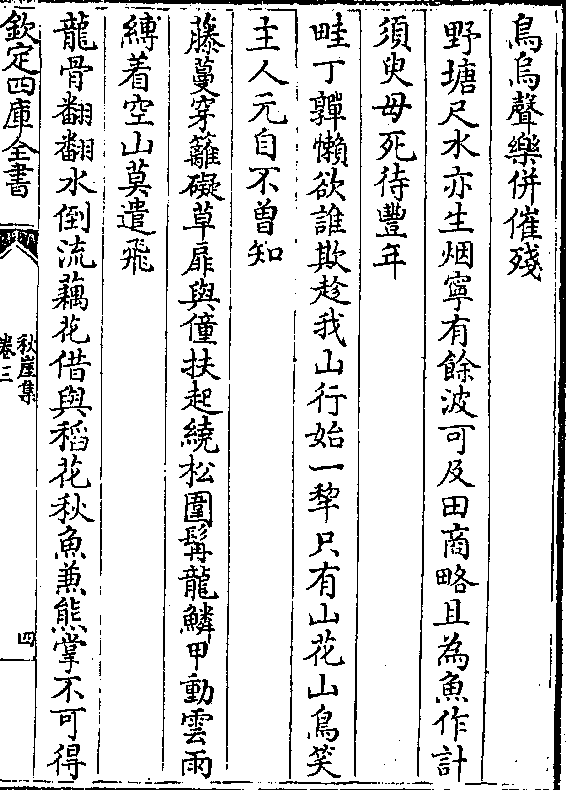 鳥烏聲樂併催殘
野塘尺水亦生烟寧有餘波可及田商略且為魚作計
須臾毋死待豐年
畦丁嚲懶欲誰欺趁我山行始一犂只有山花山鳥笑
主人元自不曾知
藤蔓穿籬礙草扉與僮扶起繞松圍髯龍鱗甲動雲雨
縛着空山莫遣飛
龍骨翻翻水倒流藕花借與稻花秋魚兼熊掌不可得
欽定四庫全書
秋崖集
卷三
四